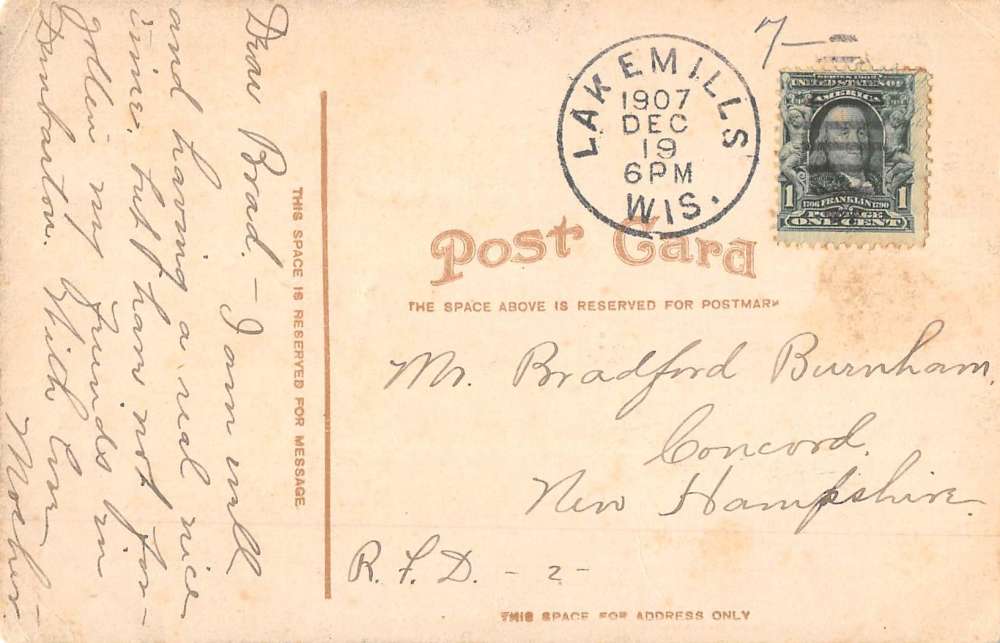 7—
LAKE MILLS
1907
DEC
19
6PM
WIS.
SERIES 1902
UNITED STATES OF
AMERICA
1
1706 FRANKLIN 1790
1
POSTAGE
ONE CENT
Post Card
THE SPACE ABOVE IS RESERVED FOR POSTMARK
Mr. Bradford Burnham,
Concord,
New Hampshire.
R. F. D. - 2 -
THIS SPACE FOR ADDRESS ONLY
THIS SPACE IS RESERVED FOR MESSAGE
Dear Brad. - I am well
and having a real nice
time, but I have not for-
gotten my friends in
Dunbarton. With love
Mother.